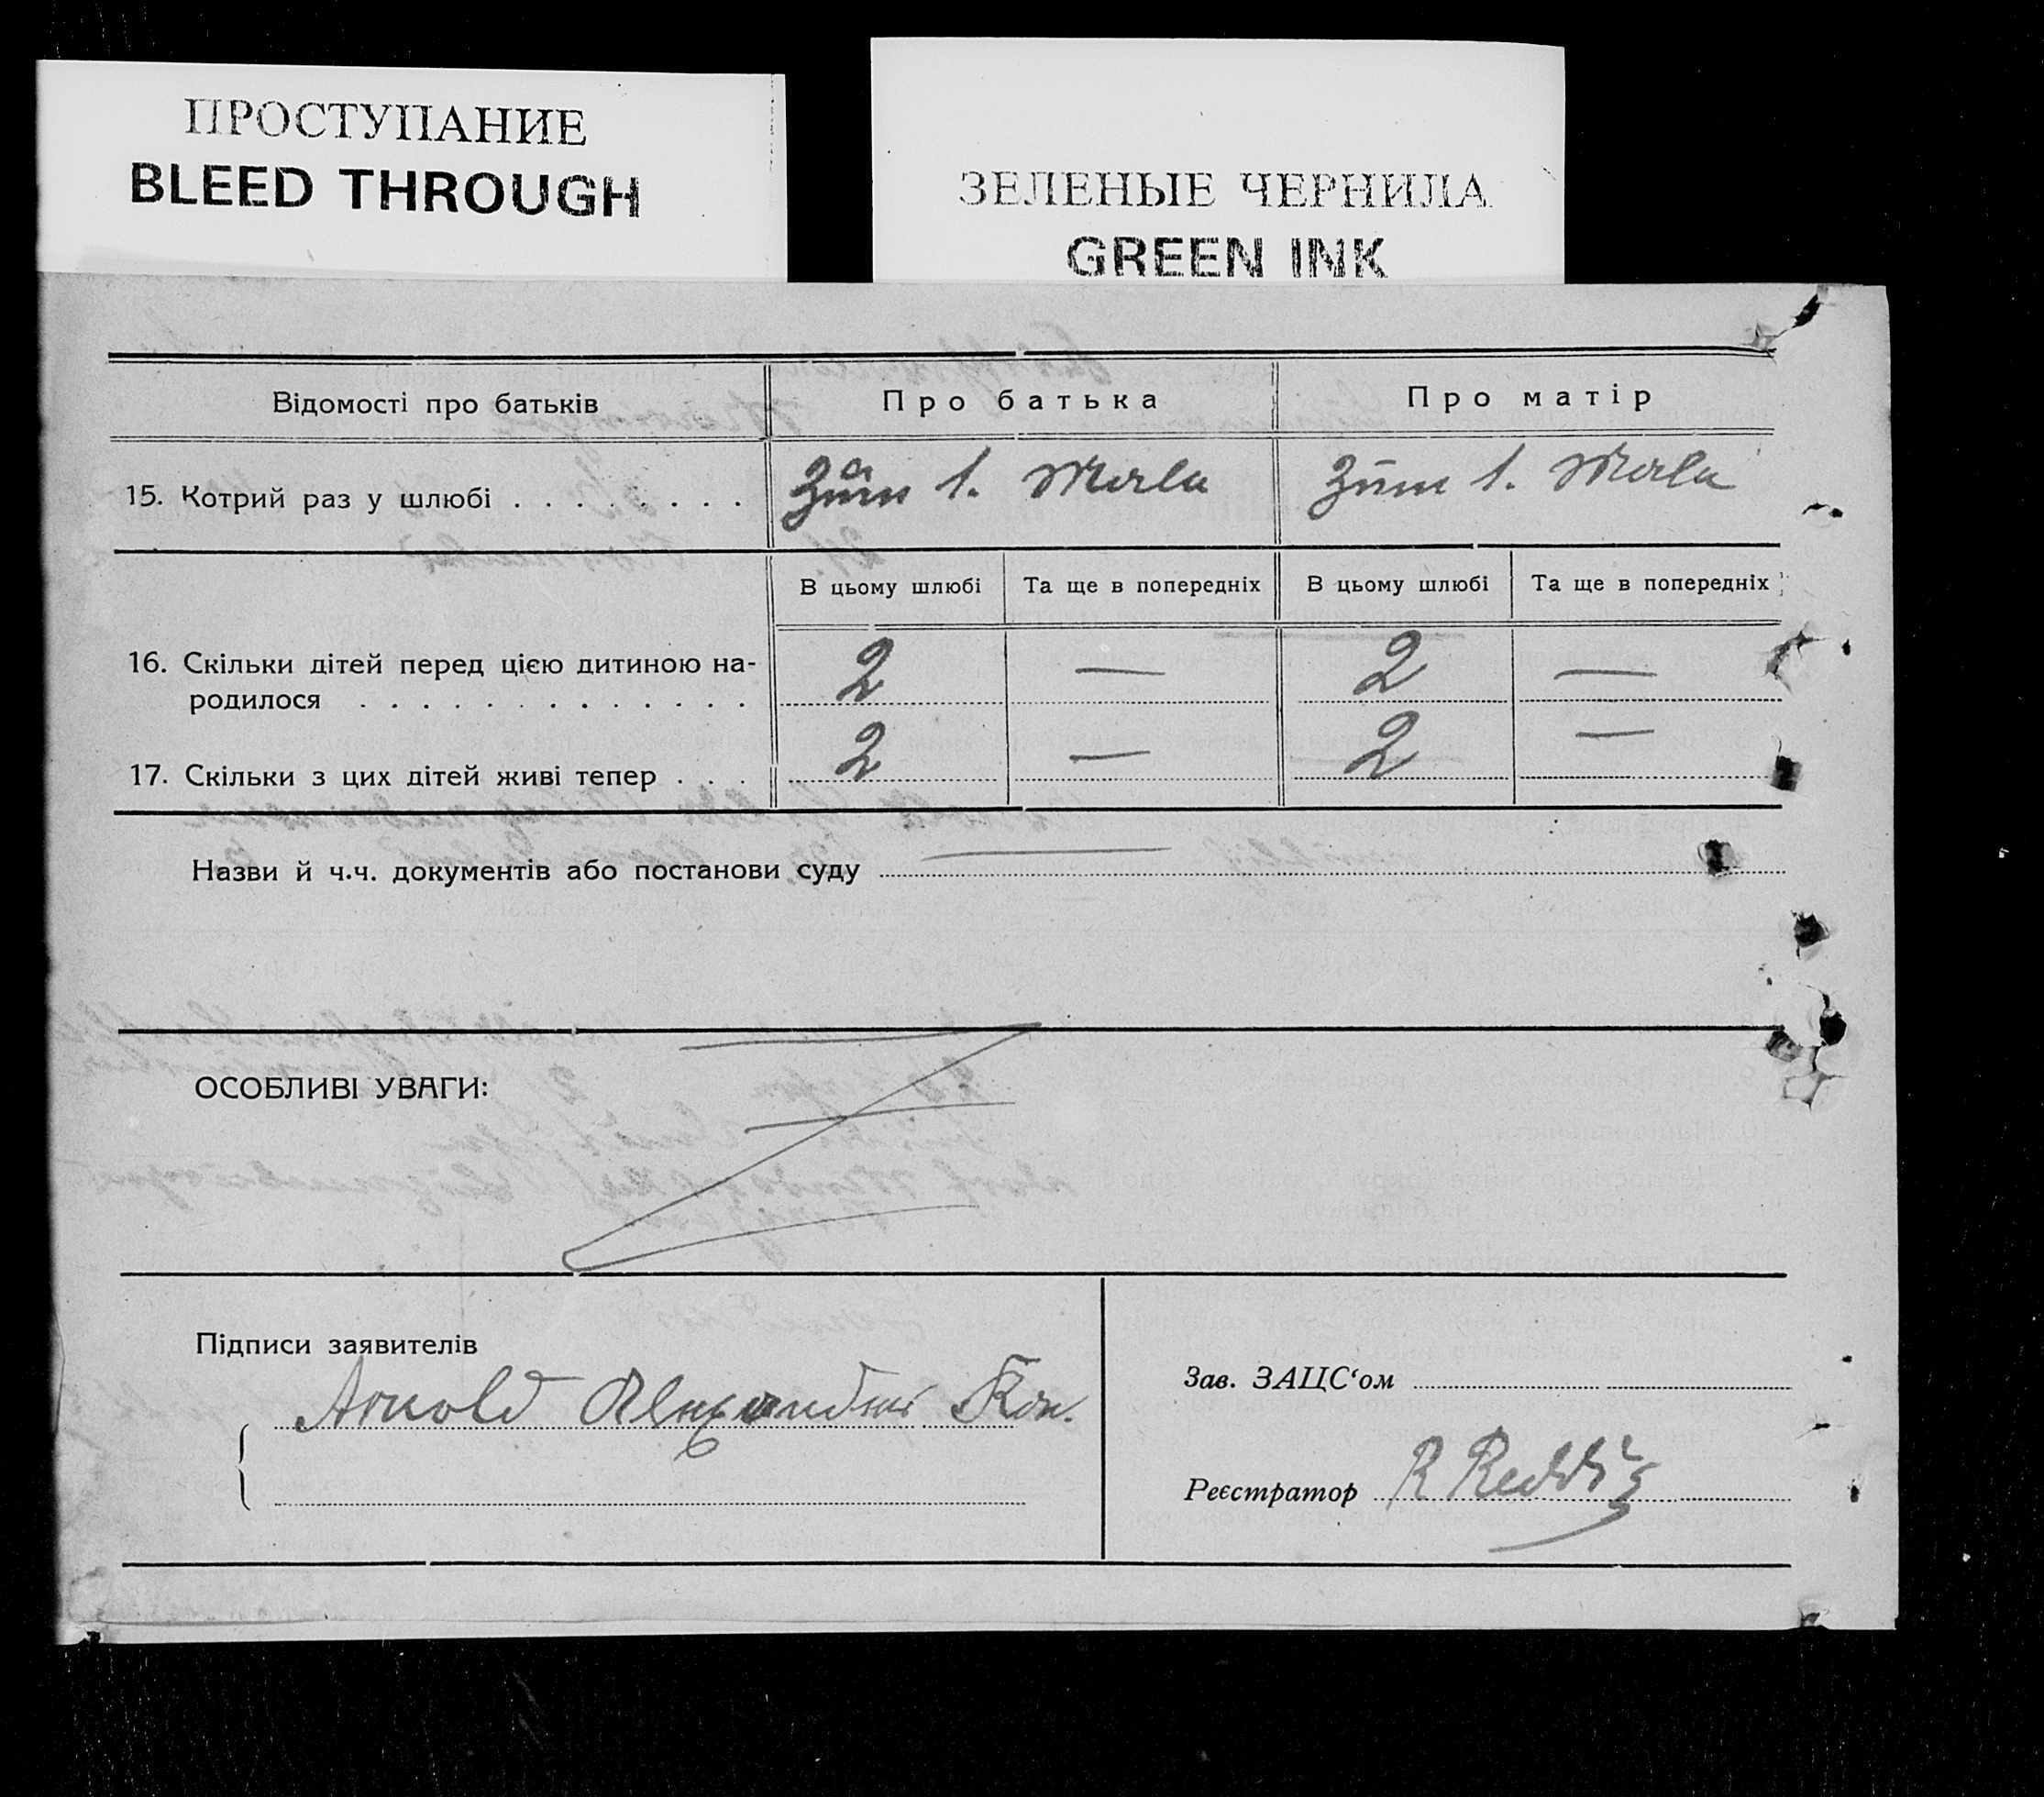 ПРОСТУПАНИЕ
BLEED THROUGH
ЗЕЛЕНЫЕ ЧЕРНИЛА
GREEN INK
Відомості про батьків Про батька Про матір
15. Котрий раз у шлюбі . . . . . . . . Zum 1. Male Zum 1. Male
В цьому шлюбі Та ще в попередніх В цьому шлюбі Та ще в попередніх
16. Скільки дітей перед цією дитиною на-
родилося . . . . . . . . . . . . . . 2 — 2 —
17. Скільки з цих дітей живі тепер . . . 2 — 2 —
Назви й ч.ч. документів або постанови суду —
ОСОБЛИВІ УВАГИ:
Підписи заявителів
Arnold Alexander
Зав. ЗАЦС‘ом
Реєстратор R